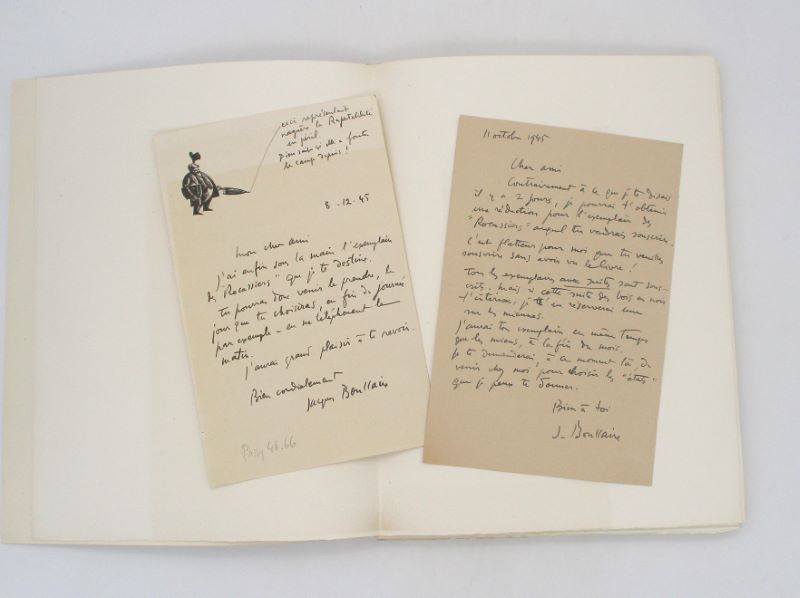 ceci représentait
naguère la Respectabilité
en péril.
Dieu sait si elle a foutu
le camp depuis !
8-12-45
mon cher ami
J'ai enfin sous la main l'exemplaire
des "Rocassiers" que je te destine.
tu pourras donc venir le prendre, le
jour que tu choisiras, en fin de journée
par exemple - en me téléphonant le
matin.
J'aurai grand plaisir à te revoir.
Bien cordialement
Jacques Boullaire
48.66
11 octobre 1945
Cher ami
Contrairement à ce que je te disais
il y a 2 jours, je pourrai t'obtenir
une réduction pour l'exemplaire des
"Rocassiers" auquel tu voudrais souscrire.
C'est flatteur pour moi que tu veuilles
souscrire sans avoir vu le livre !
Tous les exemplaires avec suite sont sous-
crits. mais si cette suite des bois en noir
t'intéresse, je t'en réserverai une
sur les miennes.
J'aurai ton exemplaire en même temps
que les miens, à la fin du mois.
Je te demanderai, à ce moment là de
venir chez moi pour choisir les "états"
que je peux te donner.
Bien à toi
J. Boullaire